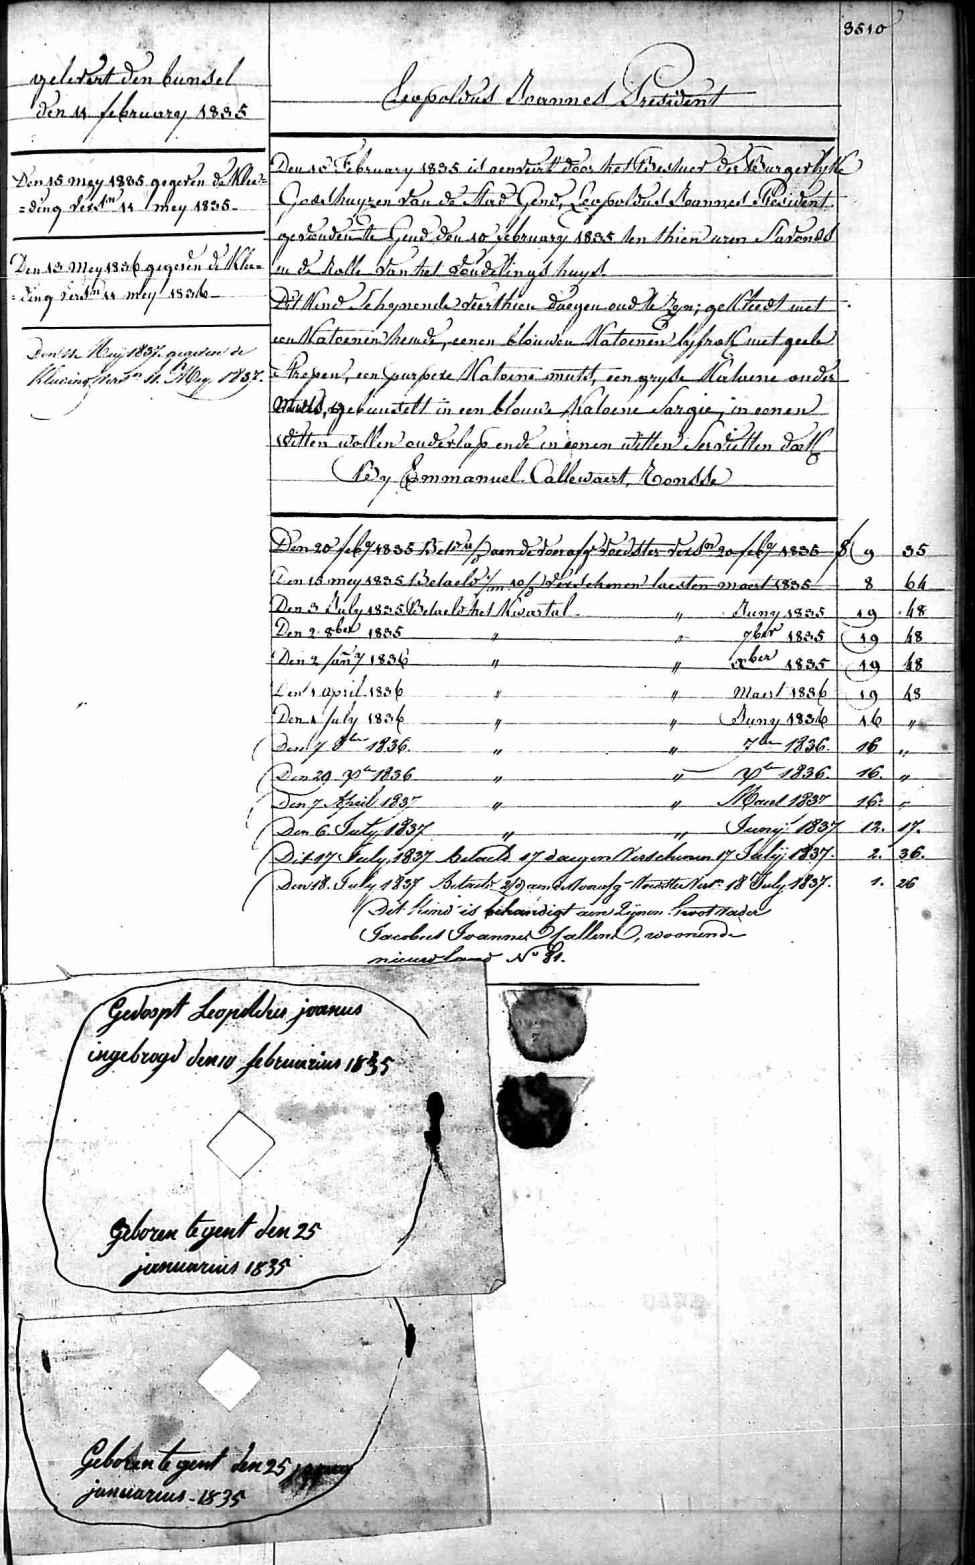 3510
gelevert den bunsel
den 11 february 1835
Den 15 mey 1835 gegeven de Klee=
=ding vers.en 11 mey 1835
Den 13 Mey 1836 gegeven de Klee=
=ding vers.en 11 mey 1836
Den 11 Meij 1837. gegeven de
Kleeding vers.en 11. Mey 1837.
Leopoldus Joannes President
Den 10 February 1835 is aenveird door het Bestuer der Burgerlyke
Godshuyzen van de Stad Gend, Leopoldus Joannes President
gevonden te Gend den 10 february 1835 ten thien uren s'avonds
in de Rolle van het Vondelingshuys.
Dit Kind schynende veerthien daegen oud te Zyn; gekleedt met
een Katoenen hemde, eenen blouwen Katoenen lyfrok met geele
strepen, een purpere Katoene muts, een gryse Katoene onder
muts, gebunselt in een blouwe Katoene Sargie, in eenen
witten wollen onderlap ende in eenen witten Servietten doek
By Emmanuel Callewaert, Ronsse
Den 20 feb.y 1835 aen de voedster vers.en 20 feb.y 1835 9 35
Den 15 mey 1835 Betaeld verschenen laesten maert 1835 8 64
Den 3 July 1835 Betaeld het Kwartal " Juny 1835 19 48
Den 2 8ber 1835 " " 7ber 1835 19 48
Den 2 Jan.y 1836 " " Xber 1835 19 48
Den 1 april 1836 " " Maert 1836 19 48
Den 1 July 1836 " " Juny 1836 16 "
Den 7 8ber 1836. " " 7ber 1836. 16 "
Den 29 Xber 1836 " " Xber 1836. 16. "
Den 7 April 1837 " " Maert 1837 16. "
Den 6 July 1837 " " Junij 1837 12. 17.
Dit 17 July 1837 betaeld 17 daegen verschenen 17 Julij 1837. 2. 36.
Den 18. July 1837 Betaeld aen de voedster vers. 18 July 1837. 1. 26
Dit Kind is behandigt aen Zijnen Grootvader
Jacobus Joannes Callens, woonende
nieuwland N° 81.
Gedoopt Leopoldus joanus
ingebrogd den 10 februarius 1835
Geboren te gent den 25
januarius 1835
Geboren te gent den 25
januarius - 1835